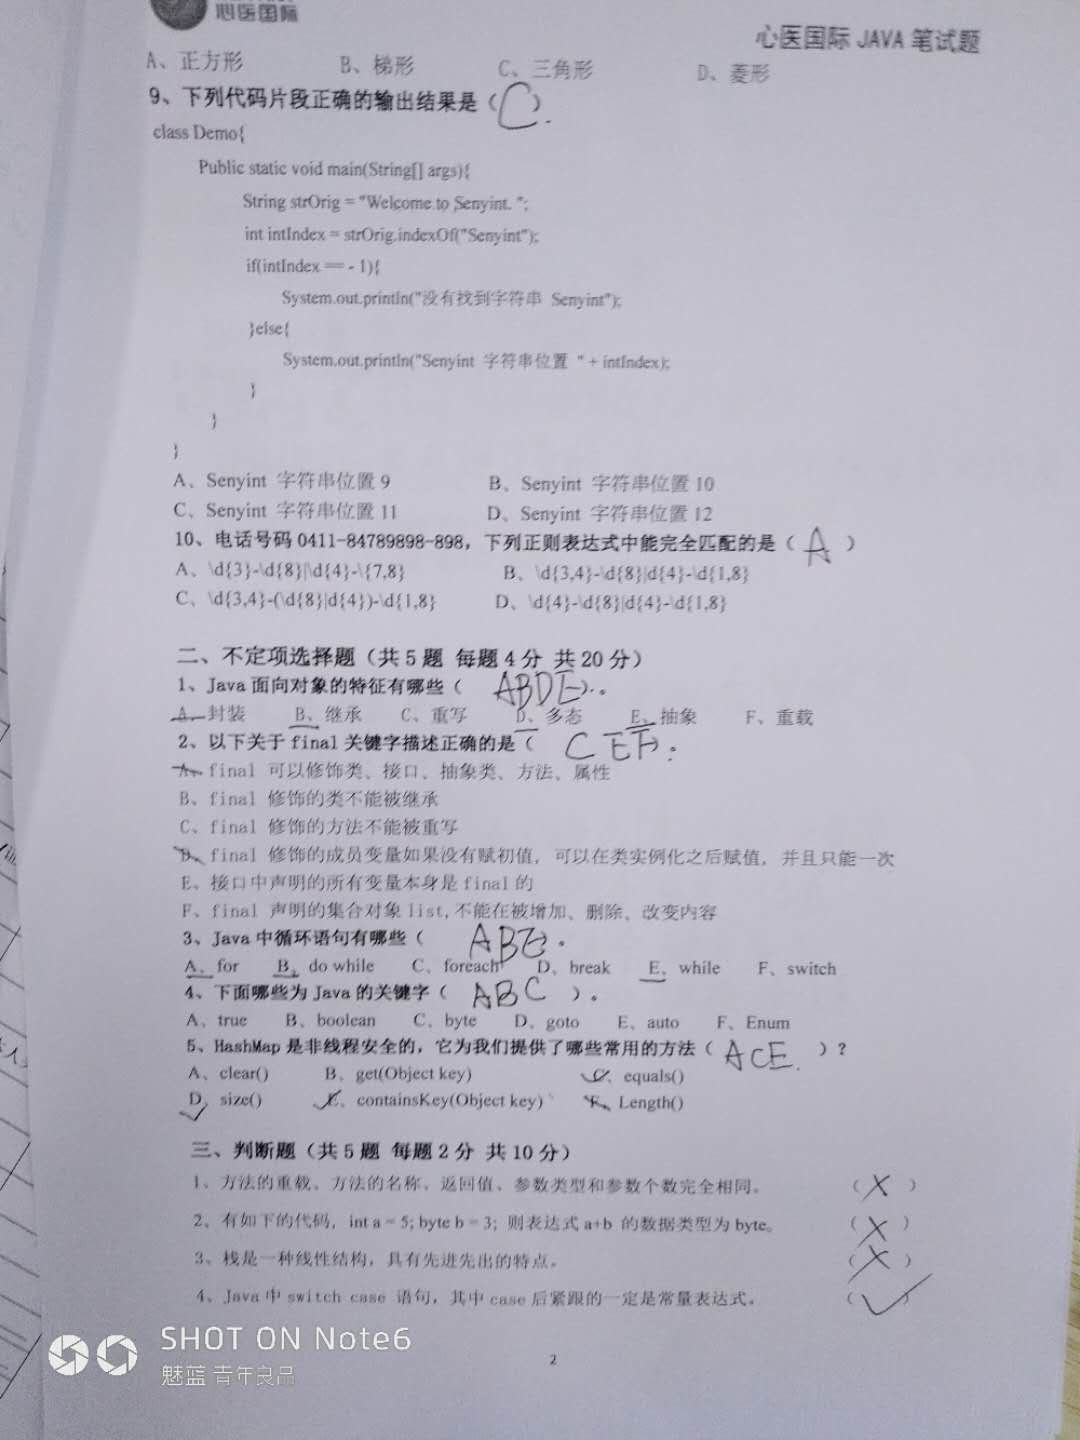 心医国际
心医国际 JAVA 笔试题
A、正方形 B、梯形 C、三角形 D、菱形
9、下列代码片段正确的输出结果是（C）.
class Demo{
Public static void main(String[] args){
String strOrig = "Welcome to Senyint. ";
int intIndex = strOrig.indexOf("Senyint");
if(intIndex == - 1){
System.out.println("没有找到字符串 Senyint");
}else{
System.out.println("Senyint 字符串位置 " + intIndex);
}
}
}
A、Senyint 字符串位置 9 B、Senyint 字符串位置 10
C、Senyint 字符串位置 11 D、Senyint 字符串位置 12
10、电话号码 0411-84789898-898，下列正则表达式中能完全匹配的是（ A ）
A、\d{3}-\d{8}|\d{4}-\{7,8} B、\d{3,4}-\d{8}|d{4}-\d{1,8}
C、\d{3,4}-(\d{8}|d{4})-\d{1,8} D、\d{4}-\d{8}|d{4}-\d{1,8}
二、不定项选择题（共 5 题 每题 4 分 共 20 分）
1、Java 面向对象的特征有哪些（ ABDE ）。
A、封装 B、继承 C、重写 D、多态 E、抽象 F、重载
2、以下关于 final 关键字描述正确的是（ CEF ）：
A、final 可以修饰类、接口、抽象类、方法、属性
B、final 修饰的类不能被继承
C、final 修饰的方法不能被重写
D、final 修饰的成员变量如果没有赋初值，可以在类实例化之后赋值，并且只能一次
E、接口中声明的所有变量本身是 final 的
F、final 声明的集合对象 list,不能在被增加、删除、改变内容
3、Java 中循环语句有哪些（ ABE ）。
A、for B、do while C、foreach D、break E、while F、switch
4、下面哪些为 Java 的关键字（ ABC ）。
A、true B、boolean C、byte D、goto E、auto F、Enum
5、HashMap 是非线程安全的，它为我们提供了哪些常用的方法（ ACE. ）？
A、clear() B、get(Object key) C、equals()
D、size() E、containsKey(Object key) F、Length()
三、判断题（共 5 题 每题 2 分 共 10 分）
1、方法的重载、方法的名称、返回值、参数类型和参数个数完全相同。 （ X ）
2、有如下的代码，int a = 5; byte b = 3; 则表达式 a+b 的数据类型为 byte。 （ X ）
3、栈是一种线性结构，具有先进先出的特点。 （ X ）
4、Java 中 switch case 语句，其中 case 后紧跟的一定是常量表达式。 （ ✓ ）
SHOT ON Note6
魅蓝 青年良品
2